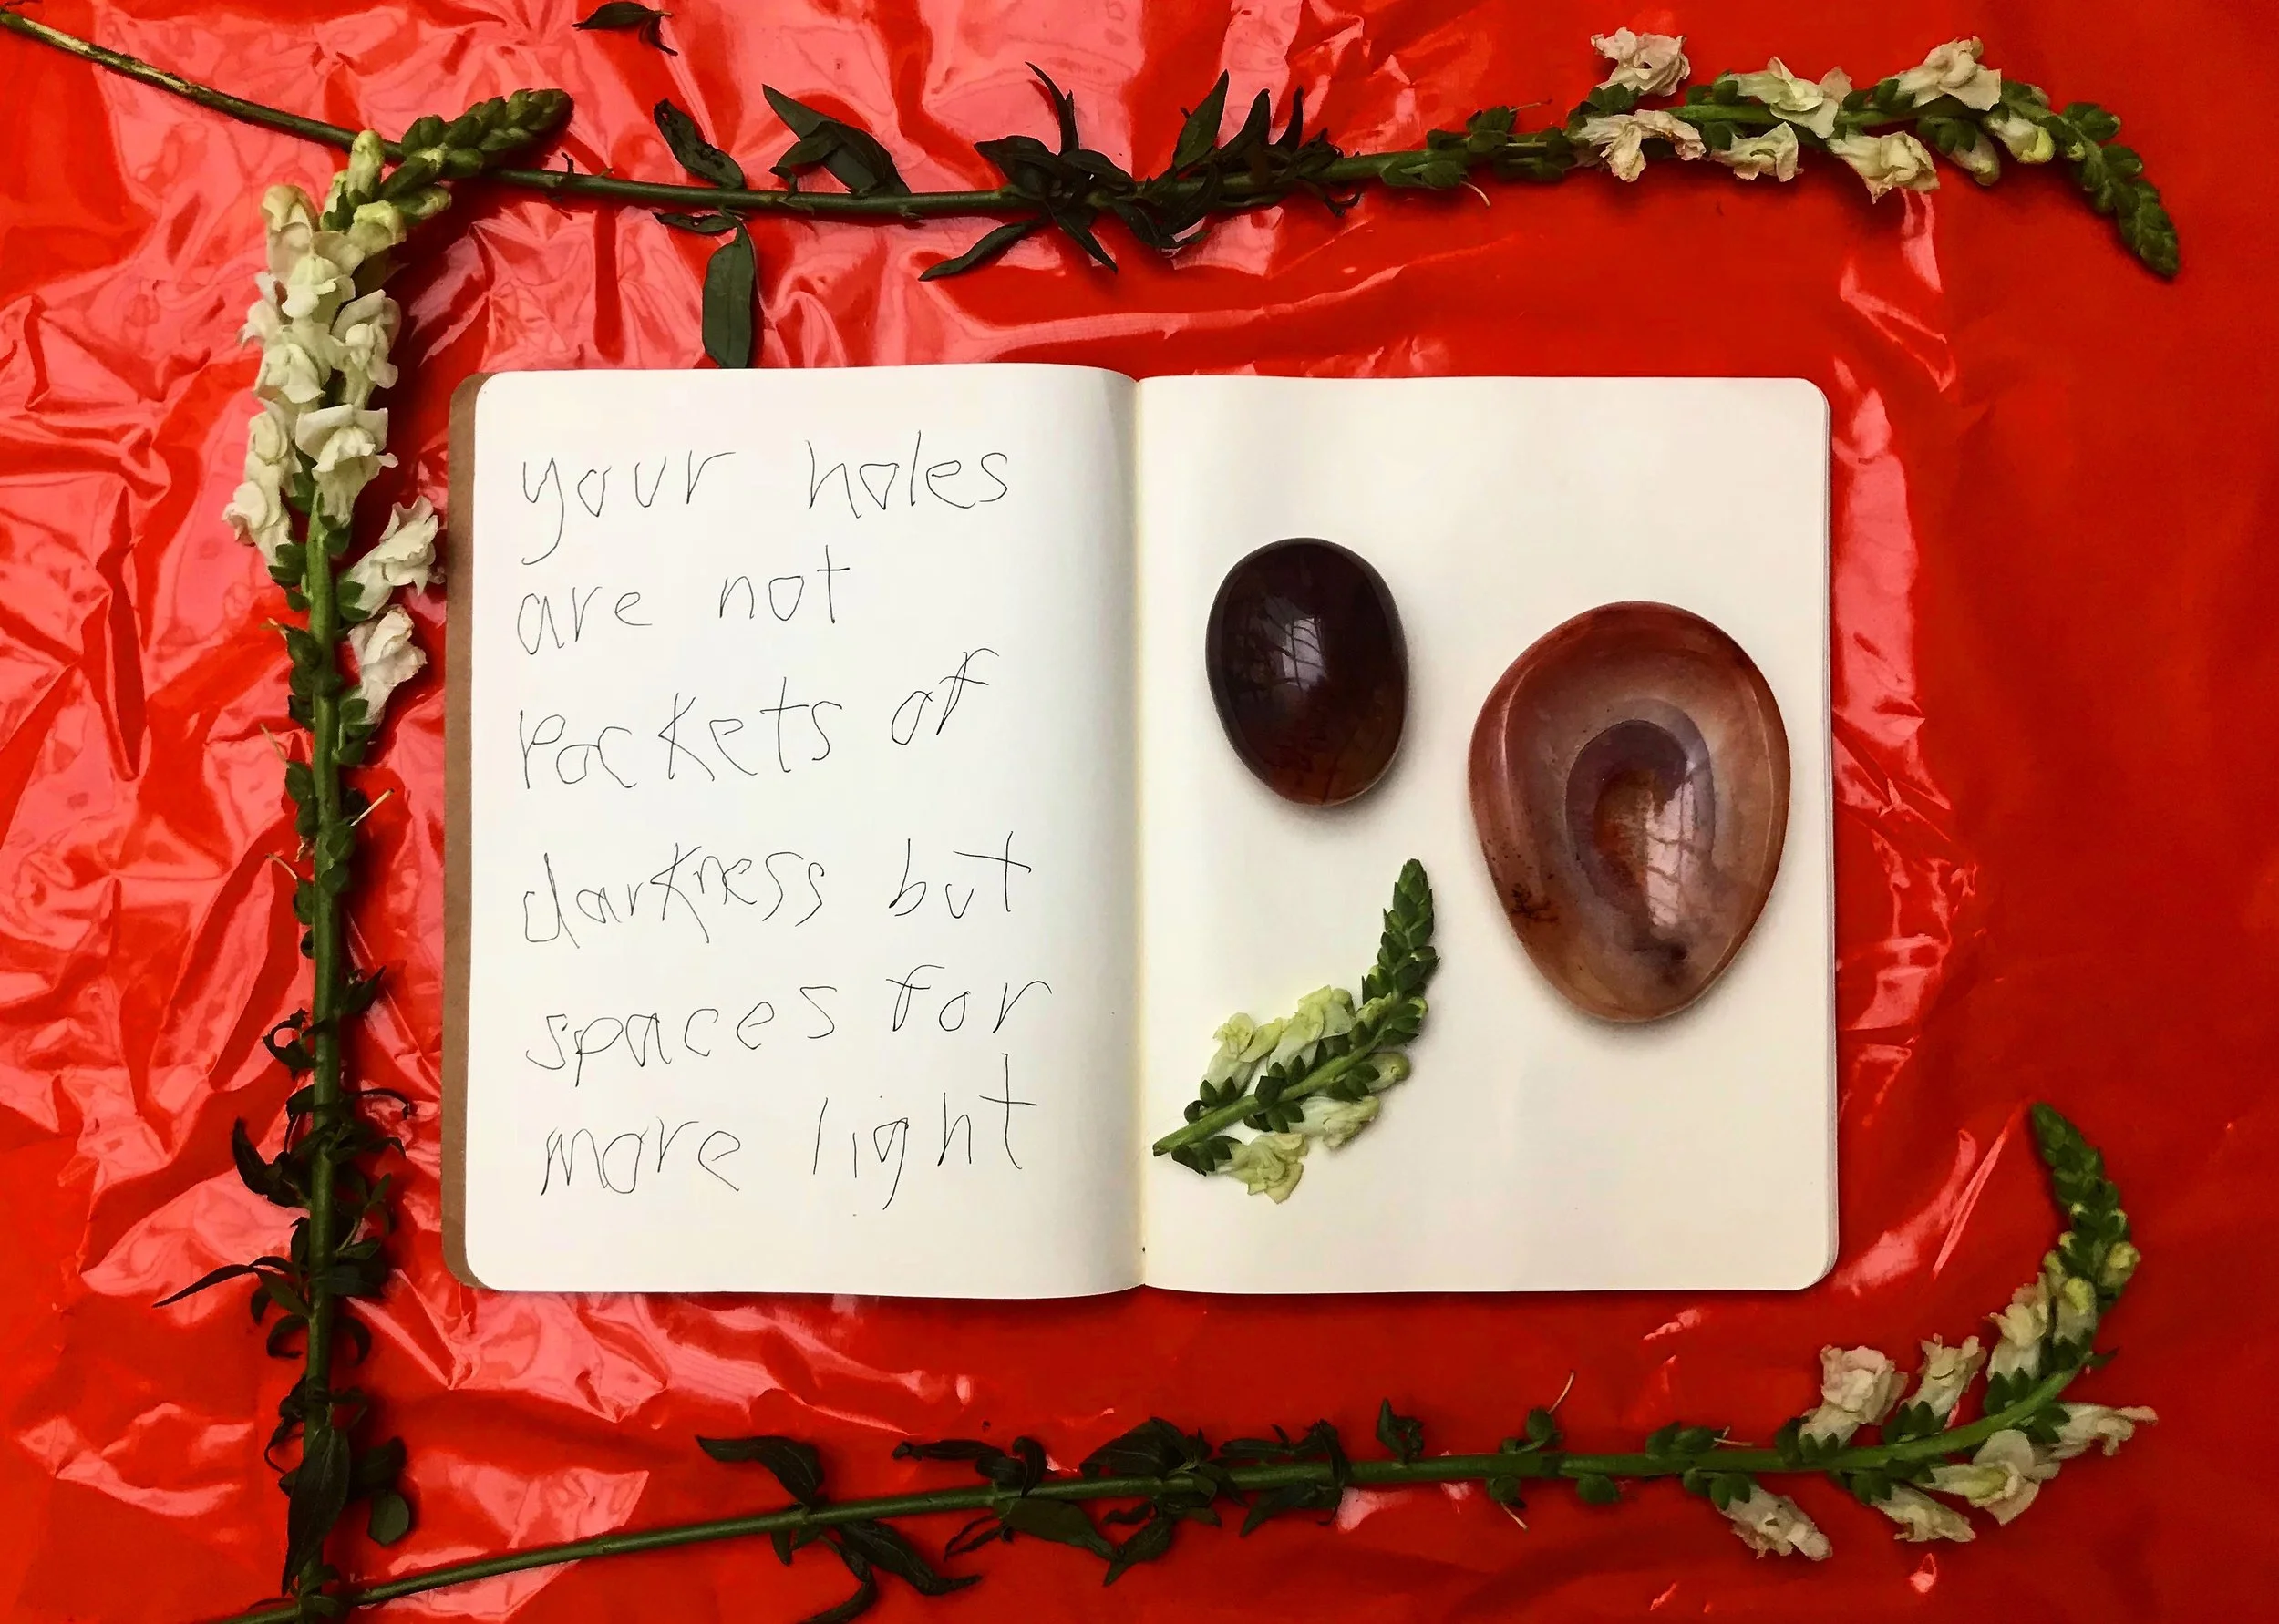 your holes
are not
pockets of
darkness but
spaces for
more light